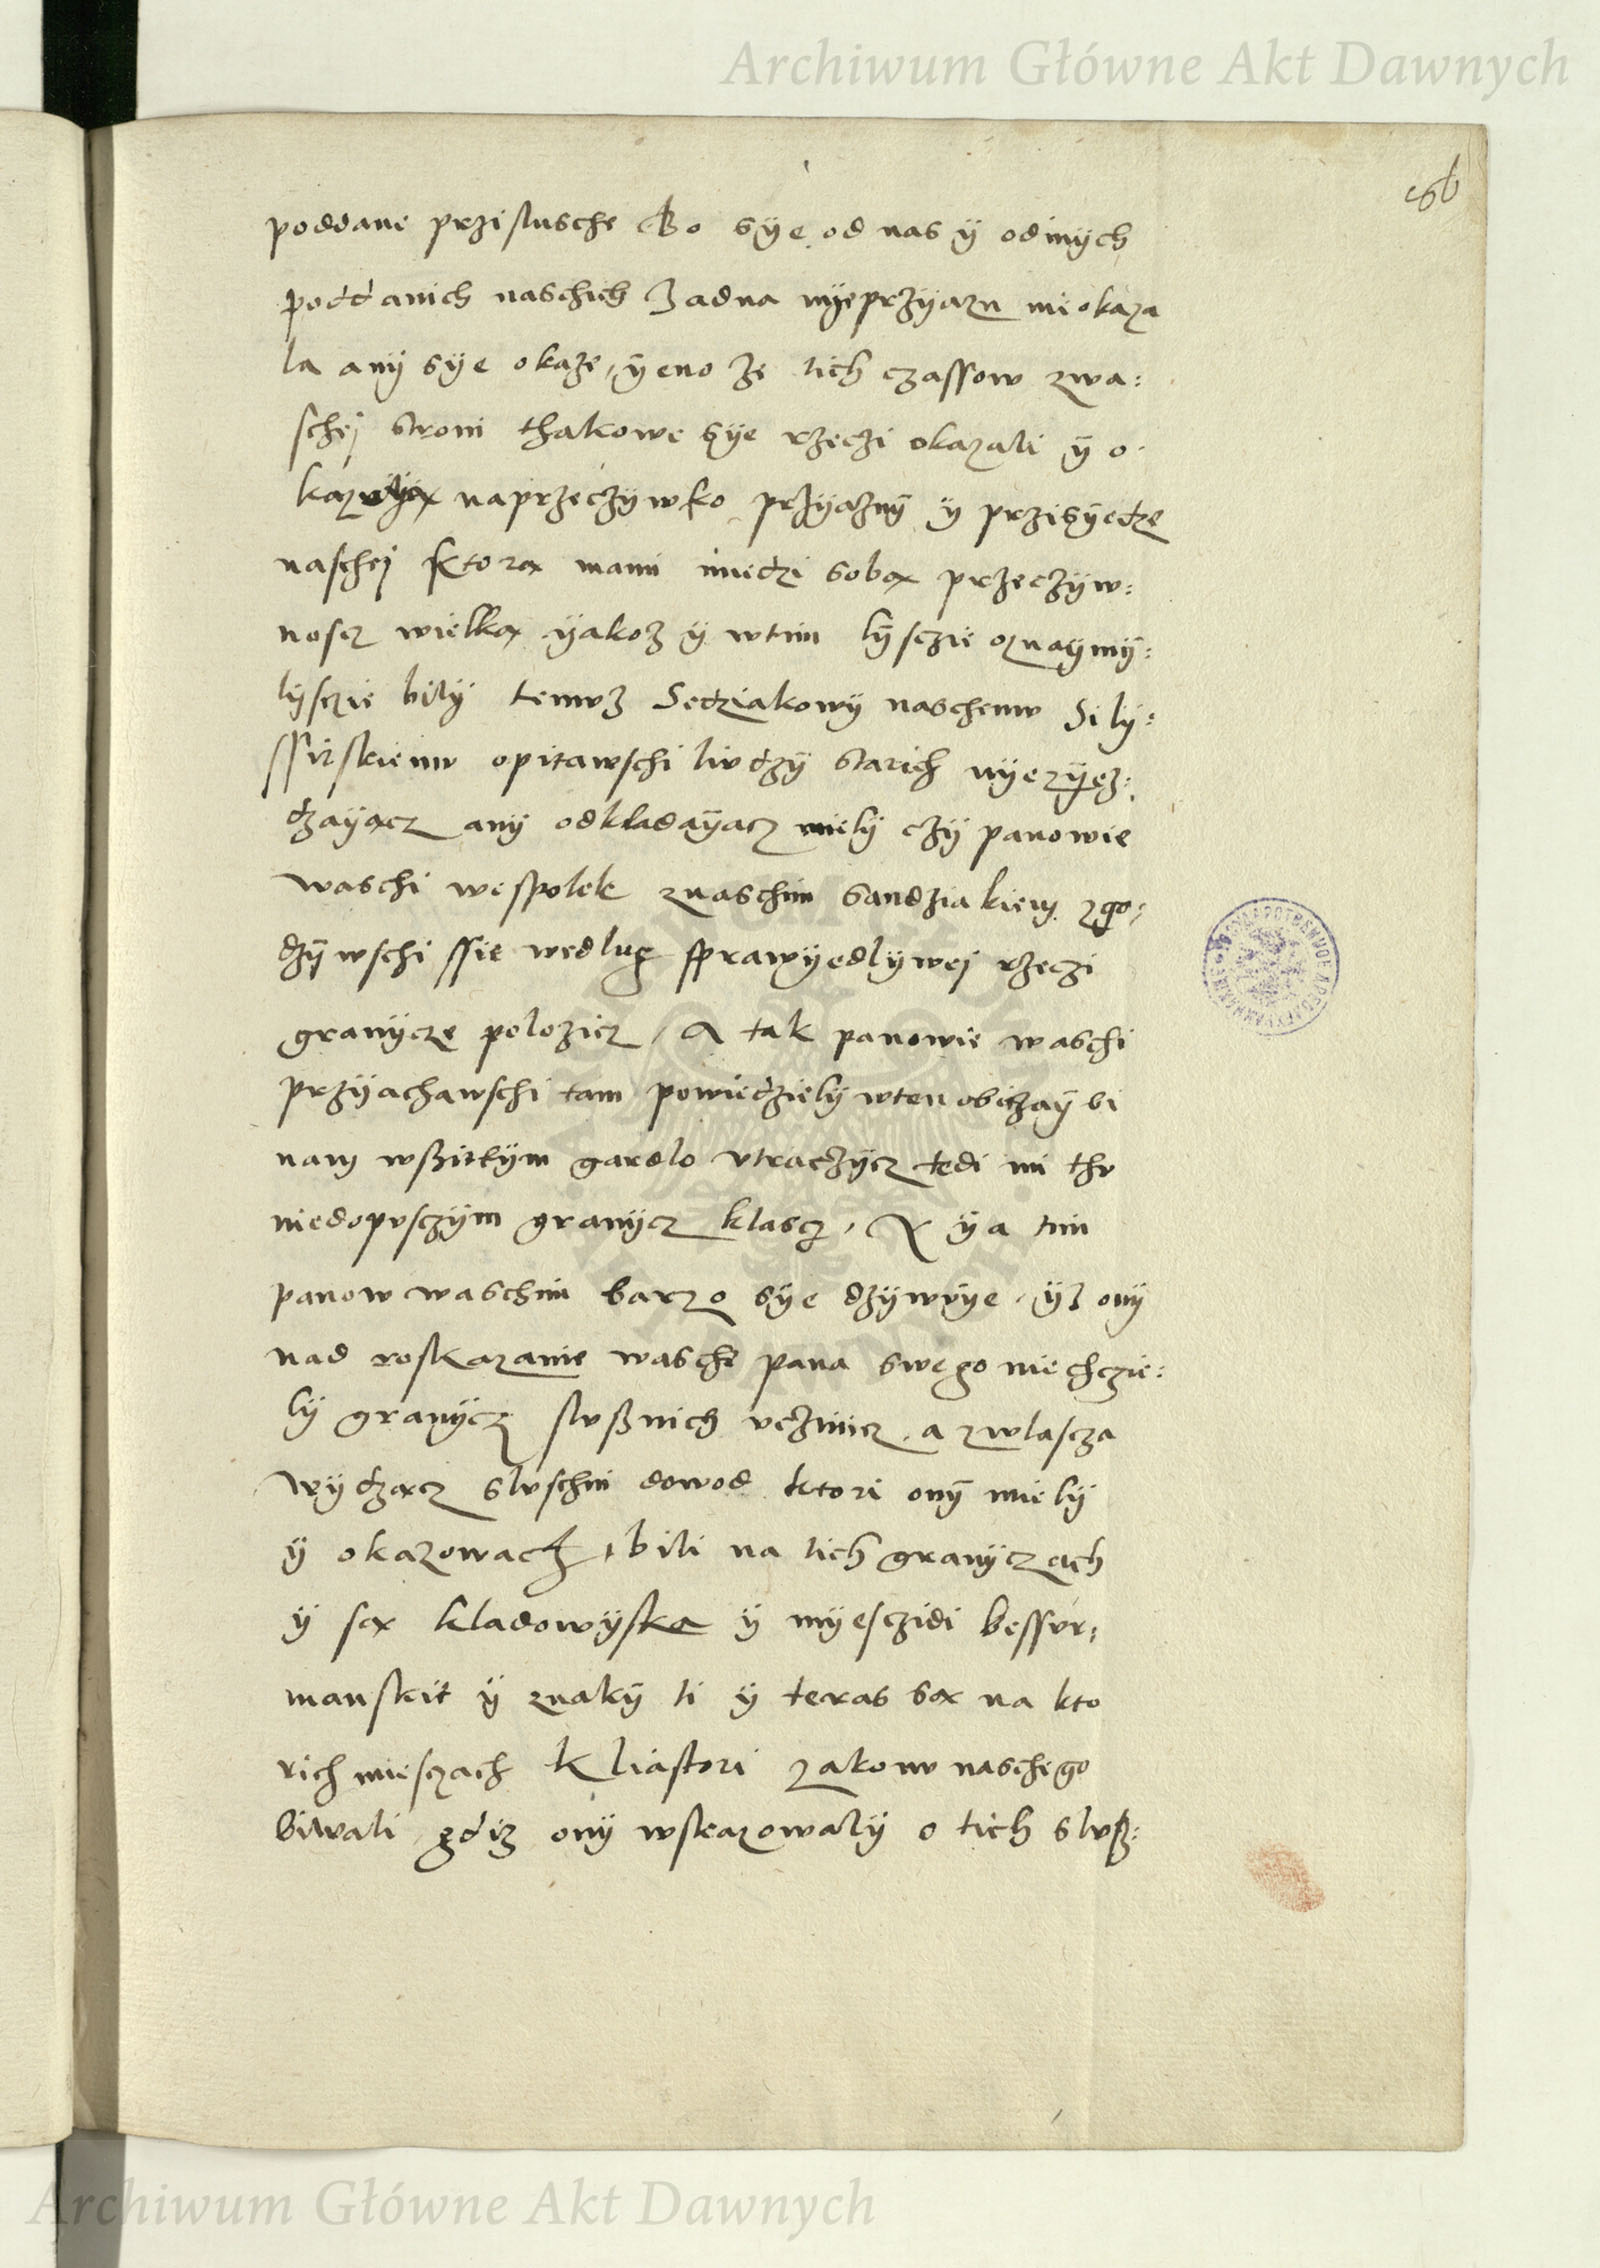 Archiwum Główne Akt Dawnych
poddane przislusche Bo sÿe od nas ÿ od inÿch
poddanich naschich Zadna nÿeprzÿiazn nie okaza
la anÿ sÿe okaze, ÿeno ze tich czassow zwa:
schej stroni thakowe sÿe rzeczi okazali ÿ o
kazuÿą naprzeczÿwko prziÿaznÿ ÿ przisÿędze
naschej ktorą mami miedzi sobą przeczÿw:
noscz wielką ÿakoz ÿ wtim lÿsczie oznaÿmÿ:
lÿsczie bilÿ temuz Sędziakowÿ naschemu Silÿ:
ssirskiemu opitawschi liudzÿ starich nÿezÿez:
dzaÿącz anÿ odkladaÿącz mielÿ czÿ panowie
waschi wespolek znaschim sandziakiem zgo:
dzÿwschi ssie wedlug sprawÿedlÿwej rzeczi
granÿcze polozicz, A tak panowie waschi
przÿiachawschi tam powiedzielÿ wten obiczaÿ bi
nam wszitkÿm gardlo utraczÿcz tedi mi thu
niedopusczÿm granÿcz klascz, A ÿa tim
panow waschim barzo sÿe dzÿwuÿe, ÿz onÿ
nad roskazanie wasche pana swego niechczie:
lÿ granÿcz slusznich uczinicz, a zwlascza
wÿdzącz sluschni dowod ktori onÿ mielÿ
ÿ okazowacz, bili na tich granÿczach
ÿ są kladowÿska ÿ mÿesczidi bessur:
manskie ÿ znakÿ ti ÿ teras są na kto
rich miesczach Kliastori zakonu naschego
biwali, gdiz onÿ wskazowalÿ o tich slusz:
Archiwum Główne Akt Dawnych